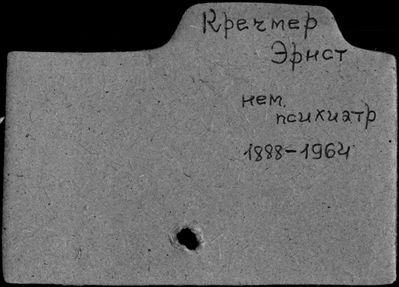 Кречмер
Эрнст
нем.
психиатр
1888-1964